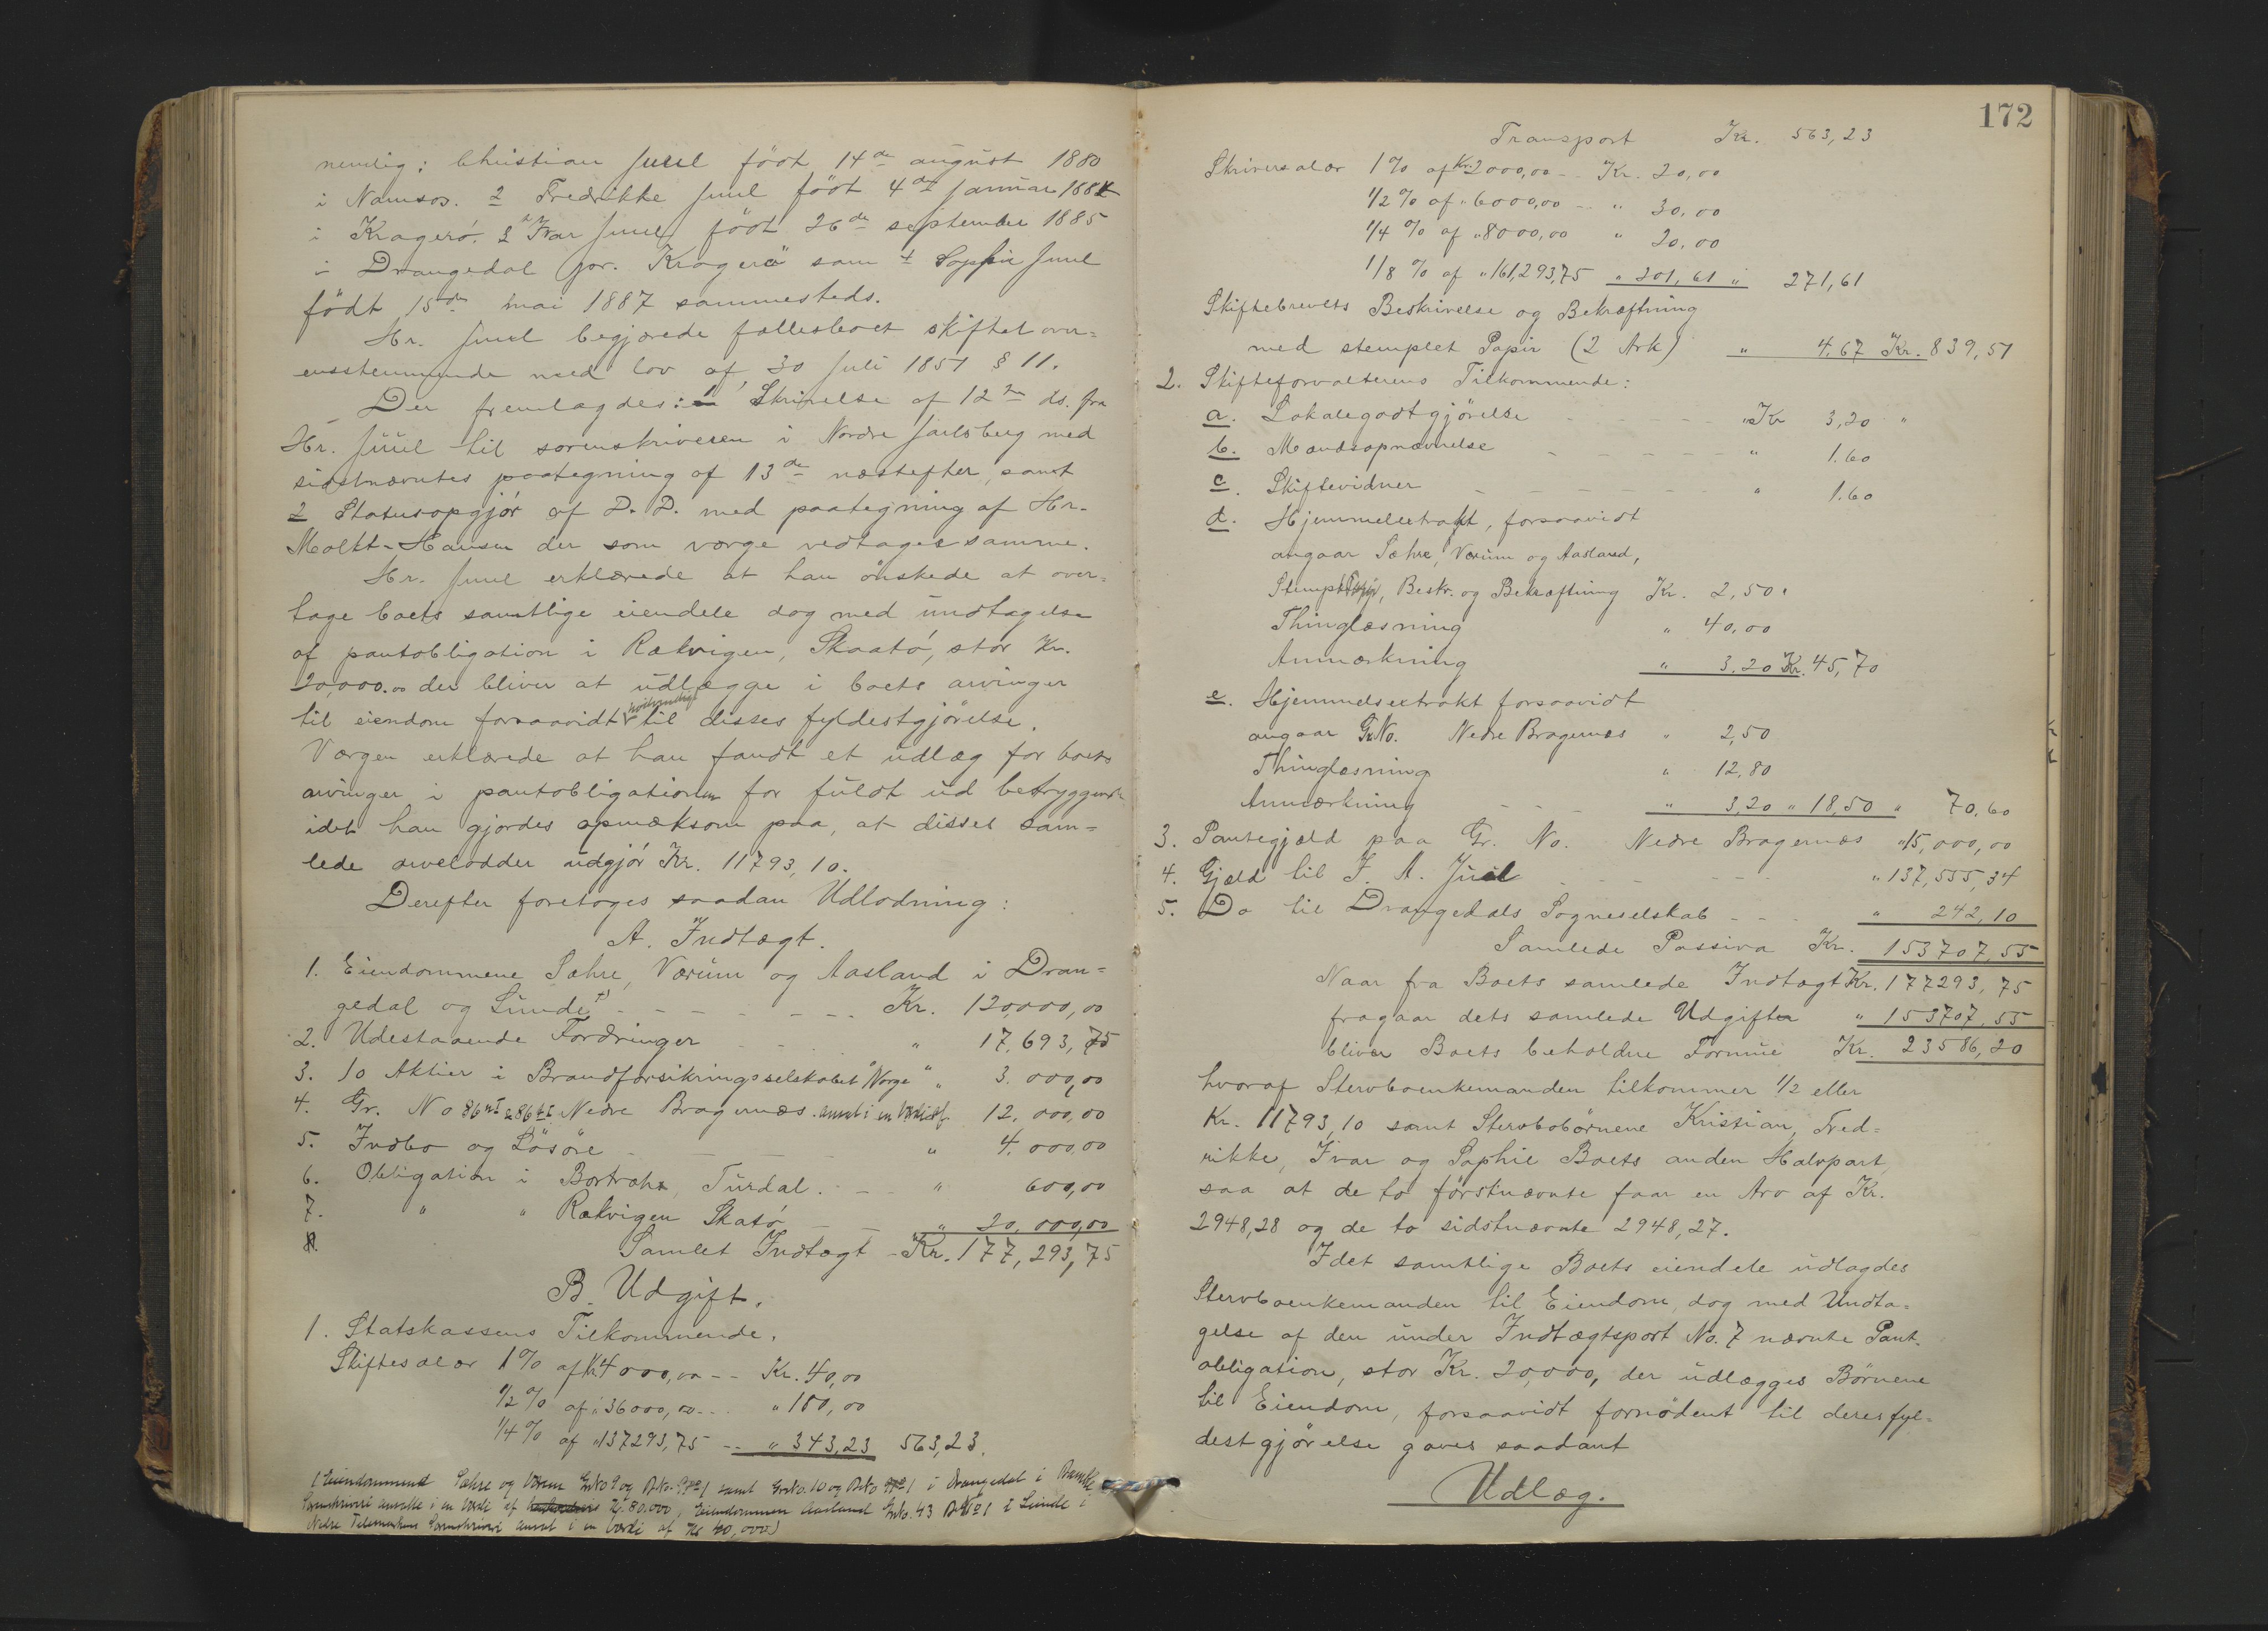 nemlig: Christian Juul födt 14de august 1880
i Namsos. 2 Fredrikke Juul födt 4de januar 188
i Kragerö. 3 Ivar Juul födt 26de september 1885
i Drangedal pr. Kragerö samt 4 Sophie Juul
födt 15de mai 1887 sammesteds.
Hr. Juul begjærede fællesboet skiftet over=
ensstemmende med lov af 30 Juli 1851 § 11.
Der fremlagdes: 1 Skrivelse af 12te ds. fra
Hr. Juul til sorenskriveren i Nordre Jarlsberg med
sidstnævntes paategning af 13de næstefter, samt
2 Statusopgjör af D. D. med paategning af Hr.
Moltk-Hansen der som værge vedtages samme.
Hr. Juul erklærede at han önskede at over=
tage boets samtlige eiendele dog med undtagelse
af pantobligation i Rækvigen, Skaatö, stor Kr.
20,000.00 der bliver at udlægge i boets arvinger
til eiendom forsaavidt nödvendigt til disses fyldestgjörelse.
Værgen erklærede at han fandt et udlæg for boets
arvinger i pantobligationen for fuldt ud betryggende
idet han gjordes opmæksom paa, at disses sam=
lede arvelodder udgjör Kr. 11793,10.
Derefter foretoges saadan Udlodning:
A. Indtægt.
1. Eiendommene Sæhre, Værum og Aasland i Dran=
gedal og Lunde †) - - - - - - Kr. 120000,00
2. Udestaaende Fordringer - - - " 17,693,75
3. 10 Aktier i Brandforsikringsselskabet "Norge" " 3.000,00
4. Gr. No 86 & 86 Nedre Bragernæs. ansat i en Værdi af 12.000,00
5. Indbo og Lösöre - - - - " 4.000,00
6. Obligation i Bortræhn, Turdal. - - " 600,00
7. " " Rækvigen Skatö - - " 20,000,00
Samlet Indtægt - Kr. 177,293,75
B. Udgift.
1. Statskassens Tilkommende.
Skiftesalær 1% af Kr 4000,00 -- Kr. 40,00
1/2 % af " 36000,00 -- " 180,00
1/4 % af " 137293,75 -- " 343,23 563,23.
(Eiendommene Sæhre og Værum Gno 9 og Bno 1 samt Gno. 10 og Bno 1 i Drangedal i Bamble
Sorenskriveri ansatte i en Værdi af Kr. 80.000, Eiendommen Aasland Gno. 43 Bno 1 i Lunde i
Nedre Telemarkens Sorenskriveri ansat i en Værdi af Kr 40,000)
172
Transport Kr. 563,23
Skriversalær 1% af Kr. 2000,00 -- Kr. 20,00
1/2 % af " 6000,00 -- " 30,00
1/4 % af " 8000,00 " 20,00
1/8 % af " 161,293,75 " 201,61 " 271,61
Skiftebrevets Beskrivelse og Bekræftning
med stemplet Papir (2 Ark) " 4,67 Kr. 839,51
2. Skifteforvalterens Tilkommende:
a. Lokalegodtgjörelse - - - " Kr 3,20 "
b. Mændsopnævnelse - - - - - " 1.60
c. Skiftevidner - - - - - - " 1.60
d. Hjemmelsextrakt, forsaavidt
angaar Sæhre, Værum og Aasland,
Stempl. Papir, Beskr. og Bekræftning Kr. 2,50.
Thinglæsning " 40,00
Anmærkning " 3,20 Kr. 45,70
e. Hjemmelsextrakt forsaavidt
angaar Gr No. Nedre Bragernæs " 2,50
Thinglæsning " 12,80
Anmærkning - - - " 3,20 " 18,50 " 70,60
3. Pantegjæld paa Gr. No. Nedre Bragernæs " 15,000,00
4. Gjæld til J. A. Juul - - - " 137,555,34
5. Do til Drangedals Sogneselskab - - - " 242,10
Samlede Passiva Kr. 153707,55
Naar fra Boets samlede Indtægt Kr. 177293,75
fragaar dets samlede Udgifter " 153707,55
bliver Boets beholdne Formue Kr. 23586,20
hvoraf Stervboenkemanden tilkommer 1/2 eller
Kr. 11793,10 samt Stervbobörnene Kristian, Fred=
rikke, Ivar og Sophie Boets anden Halvpart,
saa at de to förstnævnte faar en Arv af Kr.
2948,28 og de to sidstnævnte 2948,27.
Idet samtlige Boets eiendele udlagdes
Stervboenkemanden til Eiendom, dog med Undta=
gelse af den under Indtægtspost No. 7 nævnte Pant=
obligation, stor Kr. 20,000, der udlægges Börnene
til Eiendom, forsaavidt fornödent til deres fyl=
destgjörelse gaves saadant
Udlæg.